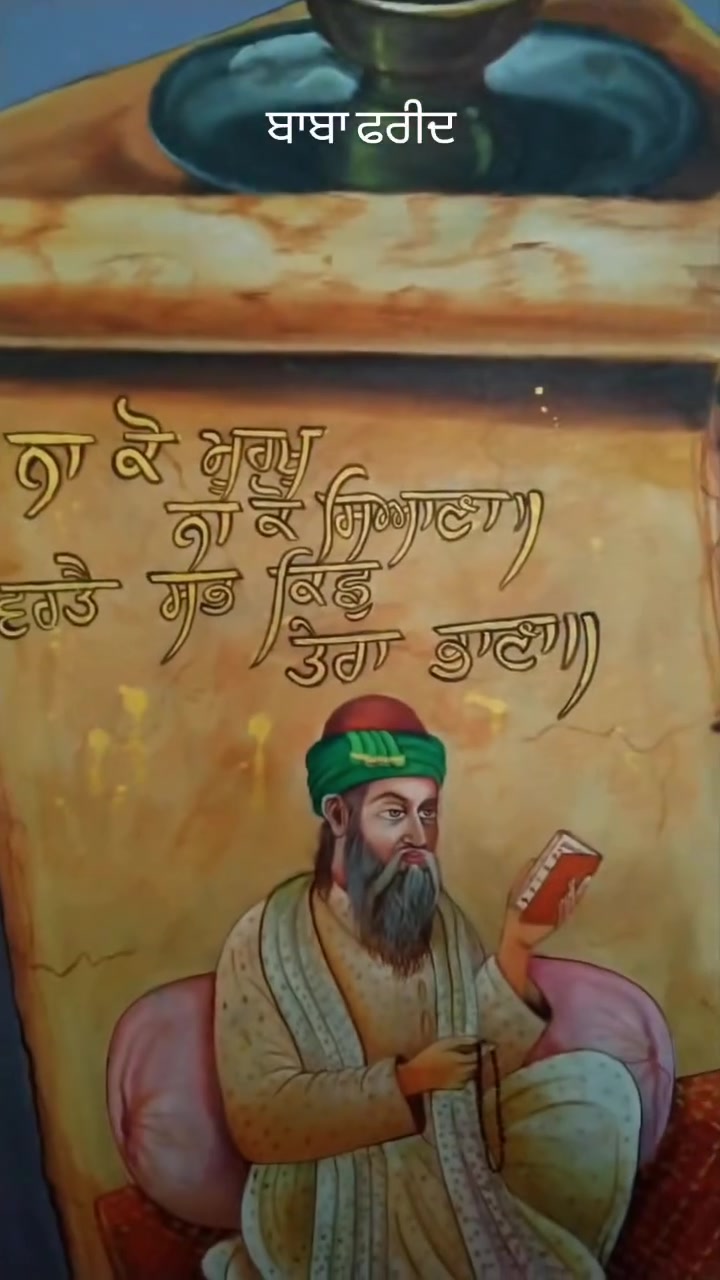 ਬਾਬਾ ਫਰੀਦ
ਨਾ ਕੋ ਮੂਰਖੁ
ਨਾ ਕੋ ਸਿਆਣਾ॥
ਵਰਤੈ ਸਭ ਕਿਛੁ
ਤੇਰਾ ਭਾਣਾ॥